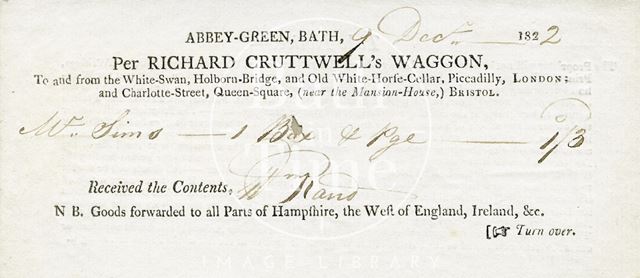 ABBEY-GREEN, BATH, 9 Decr. 1822
Per RICHARD CRUTTWELL's WAGGON,
To and from the White-Swan, Holborn-Bridge, and Old White-Horſe-Cellar, Piccadilly, LONDON;
and Charlotte-Street, Queen-Square, (near the Mansion-Houſe,) BRISTOL.
Mr. Sims — 1 Box & Pge — 1/3
Received the Contents,
N B. Goods forwarded to all Parts of Hampſhire, the Weſt of England, Ireland, &c.
[☞ Turn over.
IMAGE LIBRARY